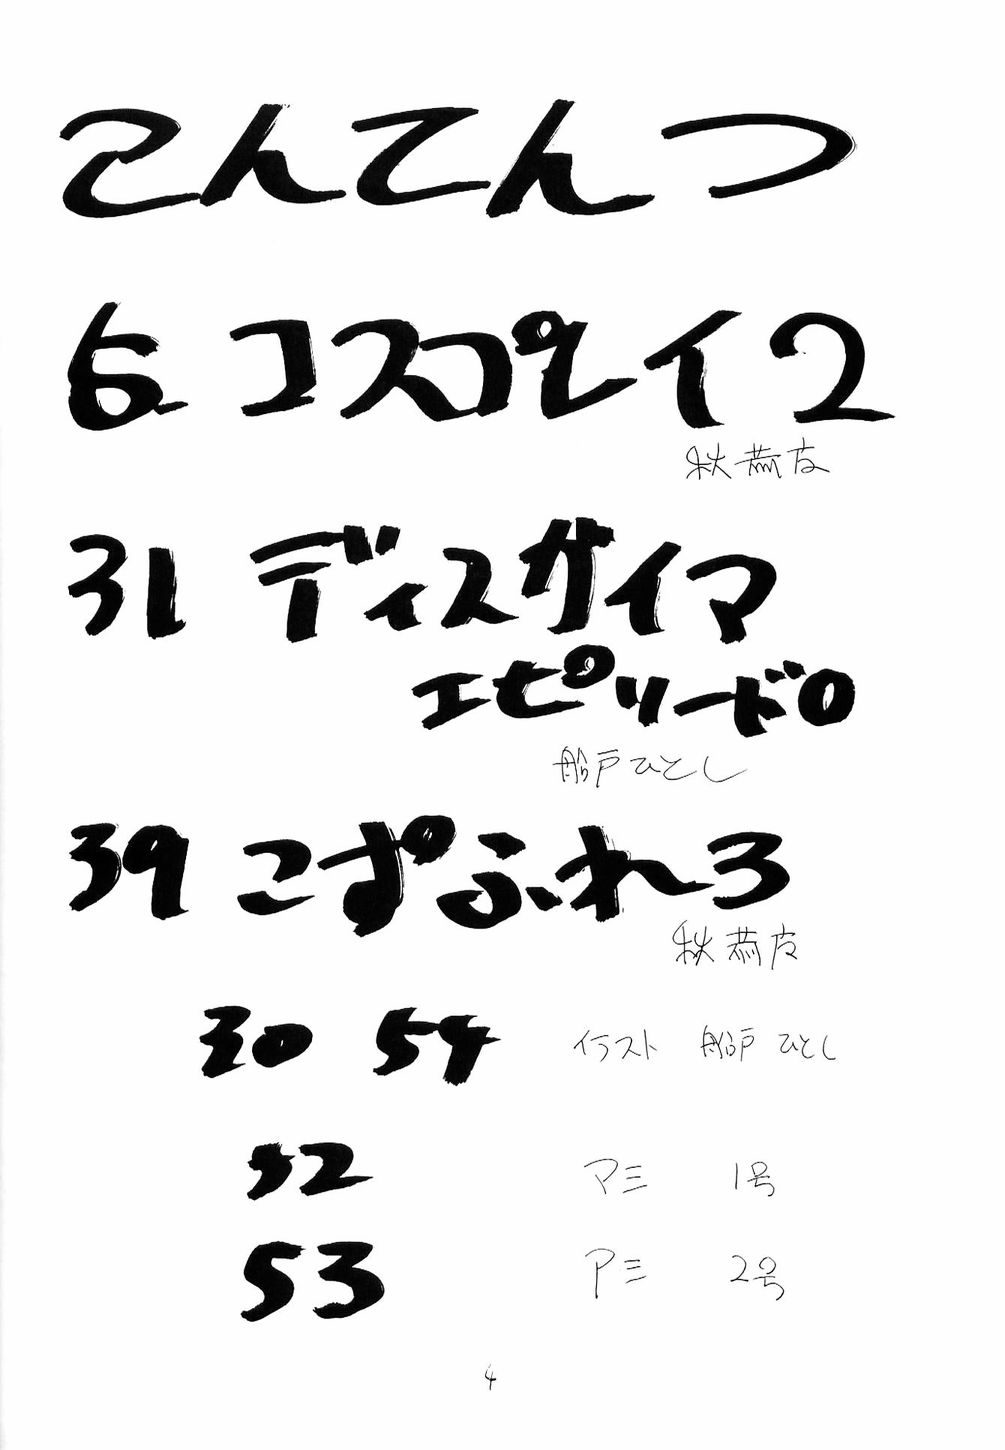 こんてんつ
6 コスプレイ2
秋恭皮
31 ディスガイマ
エピソード0
船戸ひとし
39 こすぷれ3
秋恭皮
30 54 イラスト 船戸ひとし
52 アミ 1号
53 アミ 2号
4